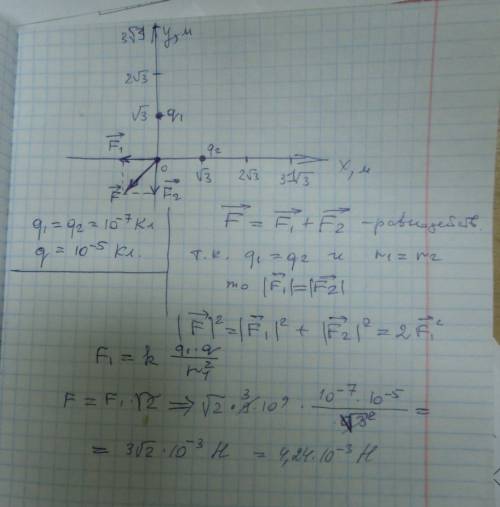 3√3 y, м
2√3
√3 q₁
F₁⃗ 0 q₂ √3 2√3 3√3 x, м
F⃗ F₂⃗
q₁ = q₂ = 10⁻⁷ Кл
q = 10⁻⁵ Кл.
F⃗ = F₁⃗ + F₂⃗ – равнодейств.
т.к. q₁ = q₂ и r₁ = r₂
то |F₁⃗| = |F₂⃗|
|F⃗|² = |F₁⃗|² + |F₂⃗|² = 2F₁⃗²
F₁ = k q₁·q / r₁²
F = F₁·√2 ⇒ √2 · 3 · 10⁹ · 10⁻⁷ · 10⁻⁵ / √3² =
= 3√2 · 10⁻³ Н = 4,24 · 10⁻³ Н